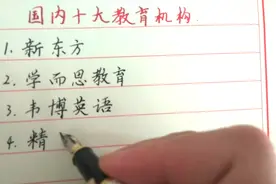 国内十大教育机构
1. 新东方
2. 学而思教育
3. 韦博英语
4. 精